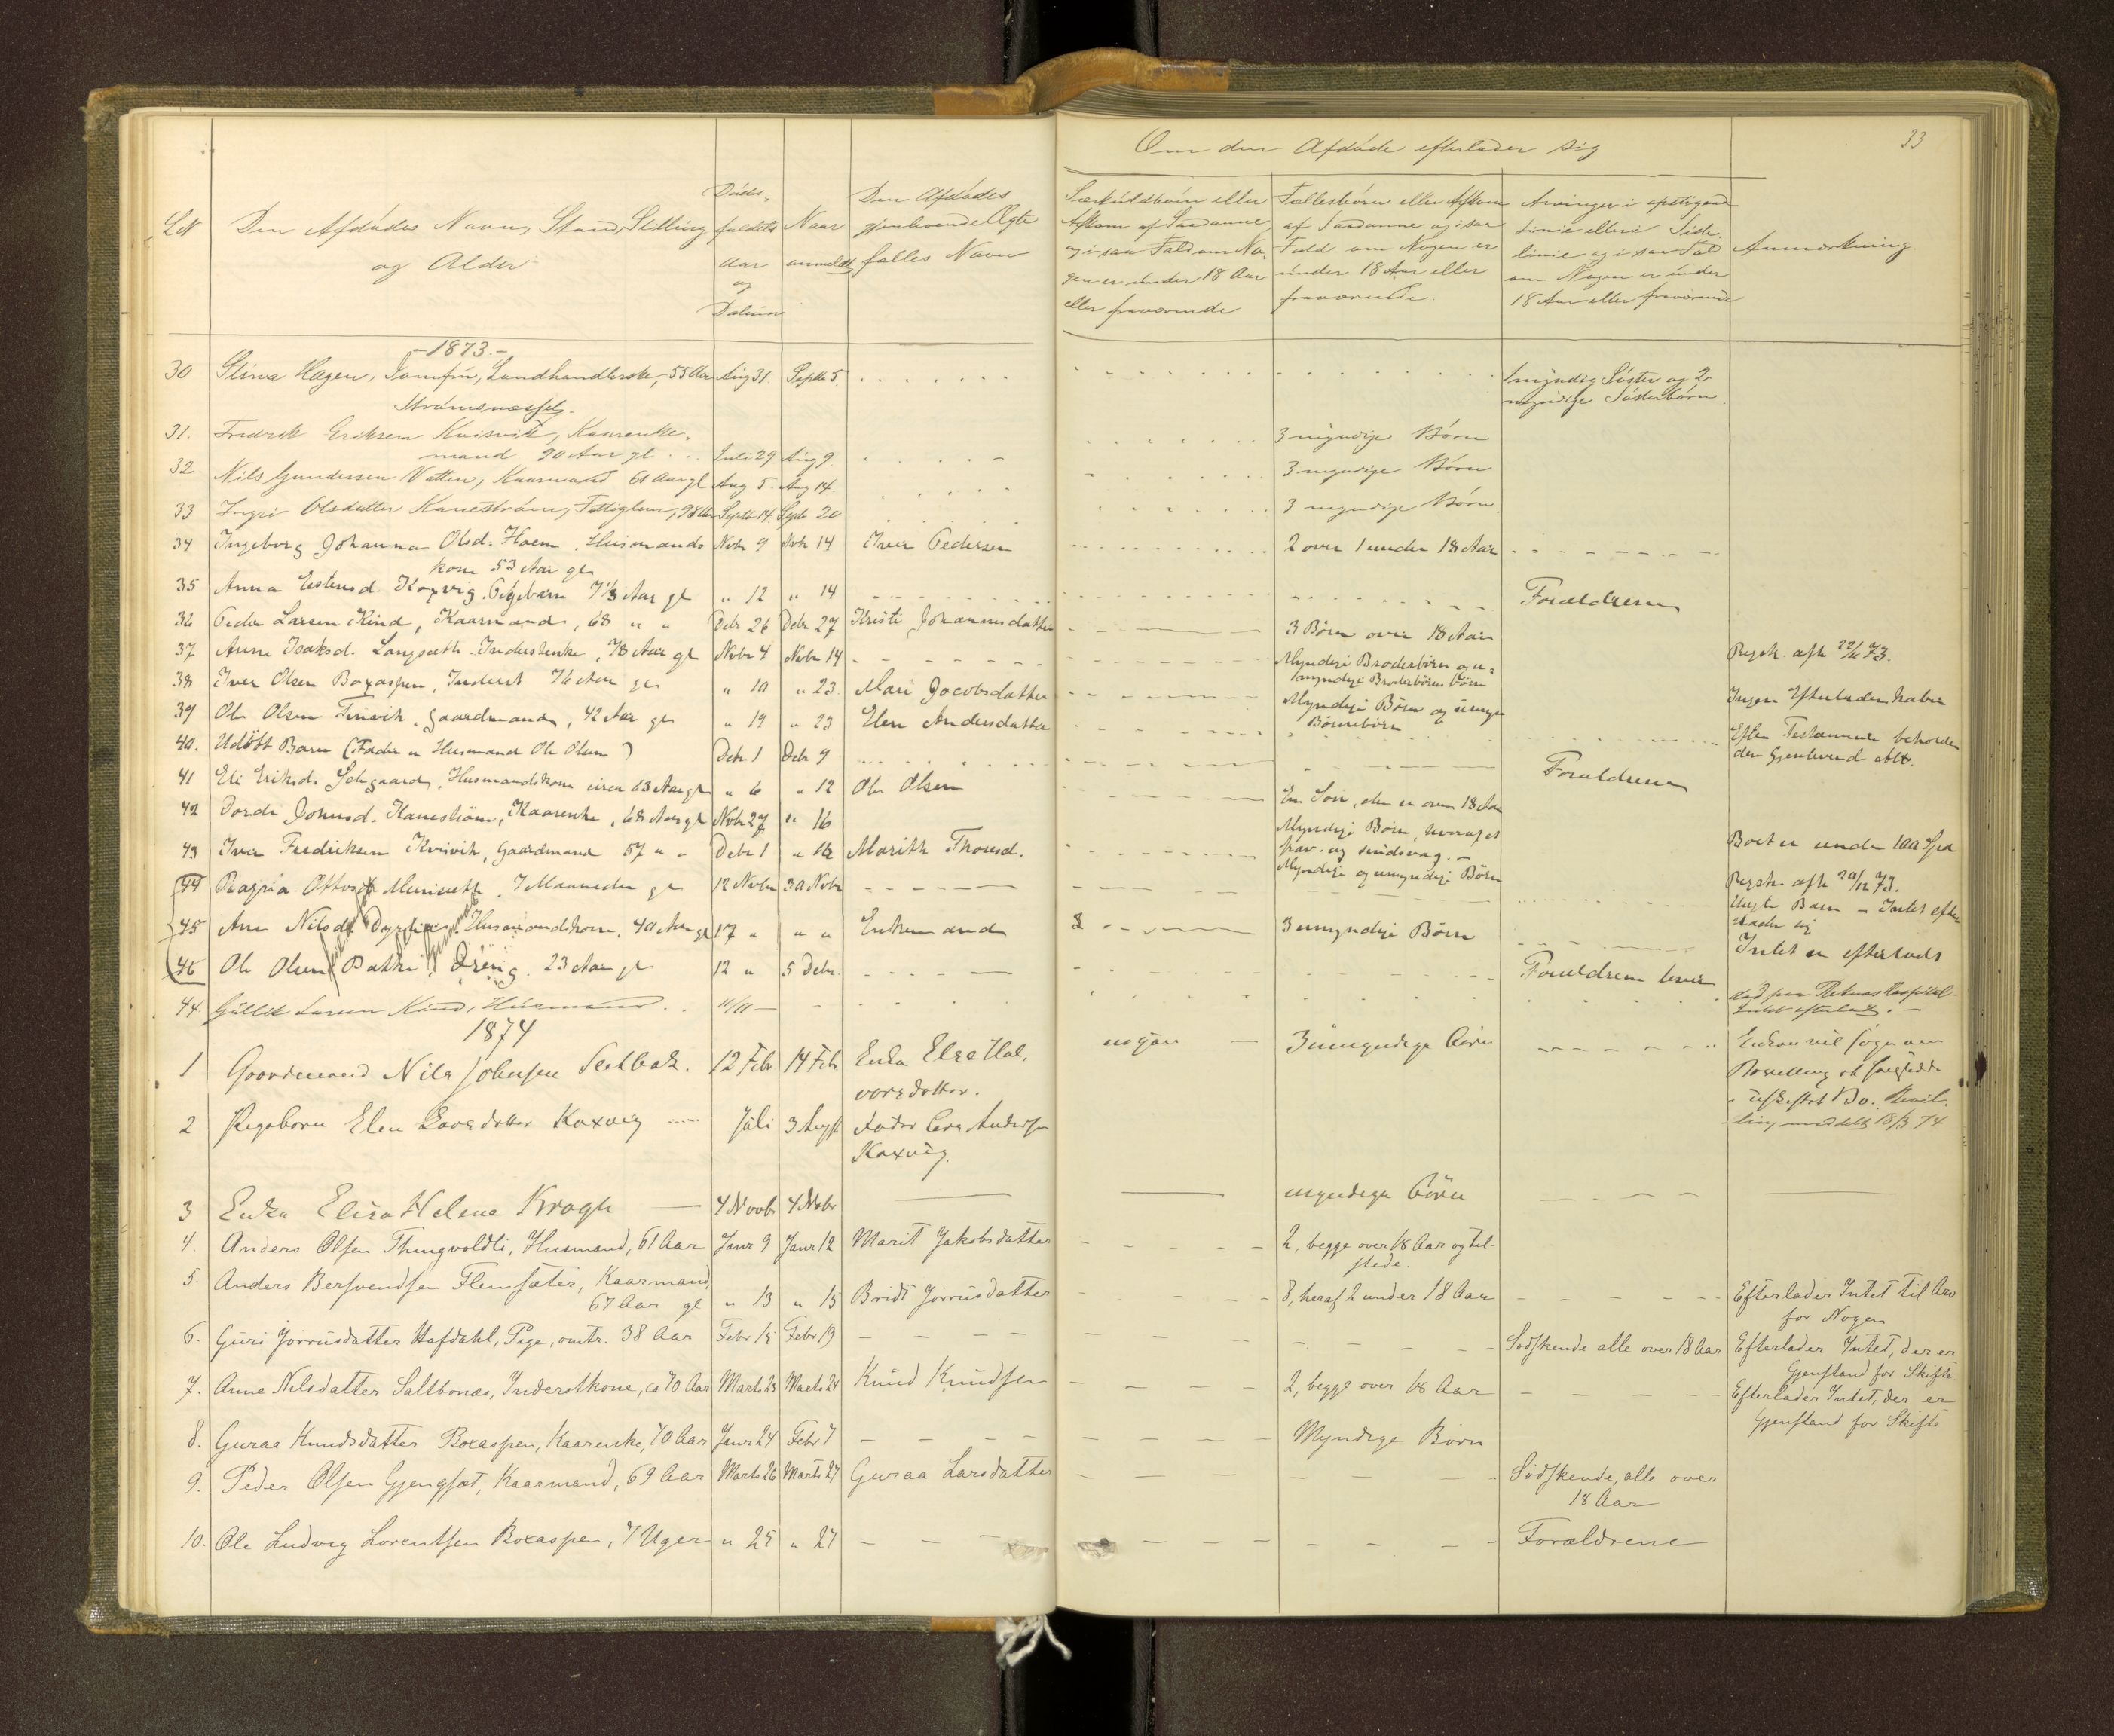 33
Om den Afdøde efterlader sig
L№
Den Afdødes Navn, Stand, Stilling
og Alder
Døds-
faldets
Aar
og
Datum
Naar
anmeldt
Den Afdødes
gjenlevende Ægte
fælles Navn
Særkuldbørn eller
Afkom af Saadanne
og i saa Fald om No-
gen er under 18 Aar
eller fraværende
Fællesbørn eller Afkom
af Saadanne og i saa
Fald om Nogen er
under 18 Aar eller
fraværende.
Arvinger i opstigende
Linie eller i Side-
linie og i saa Fal
om Nogen er under
18 Aar eller fraværende
Anmærkning.
-1873.-
30 Hagen, Jomfru, Landhandlerske, 55 Aar Aug 31. Septb 5. 1 myndig Søster og 2
Strømsnæsset. myndige Søsterbørn.
31. Fredrik Eriksen Kvisvik, Kaarenke-
mand 90 Aar gl. Juli 29 Aug 9. 3 myndige Børn
32 Nils Gundersen Vatten, Kaarmand 61 Aar gl Aug 5. Aug 14. 3 myndige Børn
33 Ingri Olsdatter Kanestrøm, Fattiglem, 98 Aar Septb 14. Septb 20 3 myndige Børn.
34 Ingeborg Johanna Olsd. Hoem, Husmands Novbr 9 Novbr 14 Iver Pedersen 2 over 1 under 18 Aar
kone 53 Aar gl
35 Anna Eistensd. Koxvig, Pigebarn 7 1/3 Aar gl " 12 " 14 Forældrene
36 Peder Larsen Kind, Kaarmand, 68 " " Debr 26 Debr 27 Kristi Johannesdatter 3 Børn over 18 Aar
37 Anne Isaksd. Langsæth, Inderstenke, 78 Aar gl Novbr 4 Novbr 14 Myndige Broderbørn og u-
myndige Broderbørns Børn Regstr. afh 22/11 73.
38 Iver Olsen Boxaspen, Inderst 76 Aar gl " 10 " 23. Mari Jacobsdatter Myndige Børn og umyn
Børnebørn Ingen Efterladenskaber
39 Ole Olsen Furuvik, Gaardmand, 42 Aar gl " 19 " 23 Elen Andersdatter Efter Testamente beholder
den Gjenlevend Alt.
40. Udøbt Barn (Fader er Husmand Ole Olsen) Debr 1 Debr 9 Forældrene
41 Eli Eriksd. Husmandskone circa 63 Aar gl " 6 " 12 Ole Olsen En Søn, der er over 18 Aar
42 Dordi Johnsd. Kanestrøm, Kaarenke, 68 Aar gl Novbr 27 " 16 Myndige Børn, hvoraf et
frav. og sindsvag.- Boet er under 100 Spd
43 Iver Fredriksen Kvisvik, Gaardmand 57 " " Debr 1 " 16 Marith Thoresd. Myndige og umyndige Børn Regstr. afh 20/12 73.
44 Ottosd. 7 Maaneder gl 12 Novbr 30 Novbr Uægte Barn - Intet efter
lader sig
45 Ane Nilsd. Husmandskone, 40 Aar gl 17 " " " Enkemand 3 umyndige Børn Intet er efterladt
46 Ole Olsen Dreng 23 Aar gl 12 " 5 Debr. Forældrene lever
død paa Reknæs Hospital.
Intet efterladt.
44 Gullik Larsen Kind, Husmand 11/11
1874
1 Gaardmand Nils Johnsen Slatbak. 12 Febr 14 Febr Enka Else Hal-
vorsdatter. ingen 3 umyndige Børn Enkan vil søge om
Bevilling at hensidde
i uskiftet Bo. Bevil-
ling meddelt 18/3 74
2 Pigebarn Elen Larsdatter Koxvig Juli 3 Augst Fader Lars Andersen
Koxvig.
3 Enka Elisa Helene Krogh 4 Novb 4 Novbr myndige Børn
4. Anders Olsen Thingvoldli, Husmand, 61 Aar Janr 9 Janr 12 Marit Jakobsdatter 2, begge over 18 Aar og til-
stede.
5. Anders Bersvendsen Flemsæter, Kaarmand,
67 Aar gl " 13 " 15 Bridt Jörrusdatter 8, heraf 2 under 18 Aar Efterlader Intet til Arv
for Nogen
6. Guri Jörrusdatter Hafdahl, Pige, omtr. 38 Aar Febr 15 Febr 19 Sødskende alle over 18 Aar Efterlader Intet, der er
Gjenstand for Skifte.
7. Anne Nilsdatter Saltbonæs, Inderstkone, ca 70 Aar Marts 23 Marts 24 Knud Knudsen 2, begge over 18 Aar Efterlader Intet, der er
Gjenstand for Skifte
8. Guraa Knudsdatter Boxaspen, Kaarenke, 70 Aar Janr 24 Febr 7 Myndige Børn
9. Peder Olsen Gjengsæt, Kaarmand, 69 Aar Marts 26 Marts 27 Guraa Larsdatter Södskende, alle over
18 Aar
10. Ole Ludvig Lorentsen Boxaspen, 7 Uger " 25 " 27 Forældrene